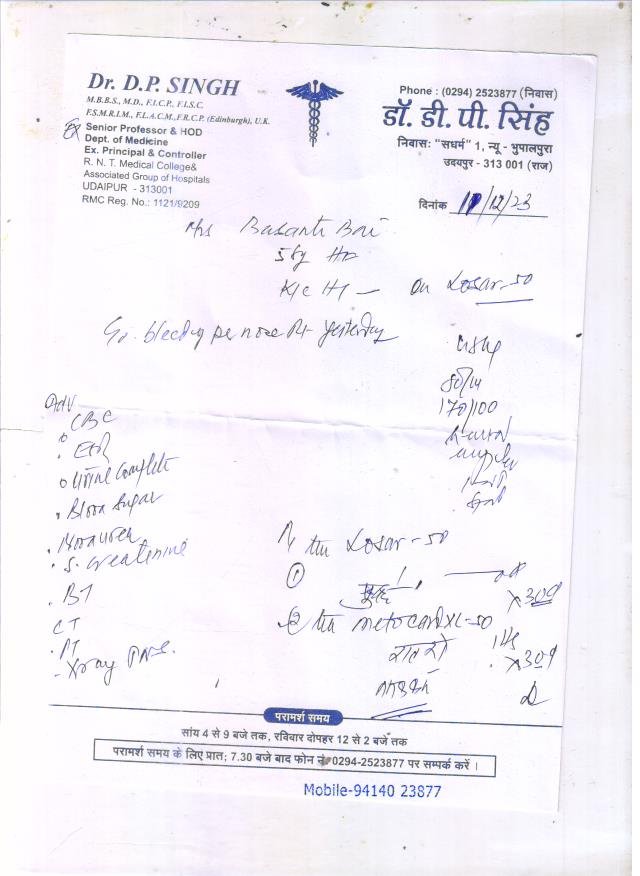 Dr. D.P. SINGH
M.B.B.S., M.D., F.I.C.P., F.I.S.C.
F.S.M.R.I.M., F.L.A.C.M.,F.R.C.P. (Edinburgh), U.K.
Ex Senior Professor & HOD
Dept. of Medicine
Ex. Principal & Controller
R. N. T. Medical College&
Associated Group of Hospitals
UDAIPUR - 313001
RMC Reg. No.: 1121/9209
Phone : (0294) 2523877 (निवास)
डॉ. डी. पी. सिंह
निवास: "सधर्म" 1, न्यू - भुपालपुरा
उदयपुर - 313 001 (राज)
दिनांक 11/12/23
Mrs Basanti Bai
K/c Ht - on Losar-50
bleeding per nose Rt yesterday
170/100
Adv
CBC
ESR
Urine complete
Blood sugar
Blood urea
S. creatinine
BT
CT
PT
Xray PNS.
Losar-50
①
x 30d
② Metocard XL-50
x 30d
परामर्श समय
सांय 4 से 9 बजे तक, रविवार दोपहर 12 से 2 बजे तक
परामर्श समय के लिए प्रात; 7.30 बजे बाद फोन नं. 0294-2523877 पर सम्पर्क करें ।
Mobile-94140 23877